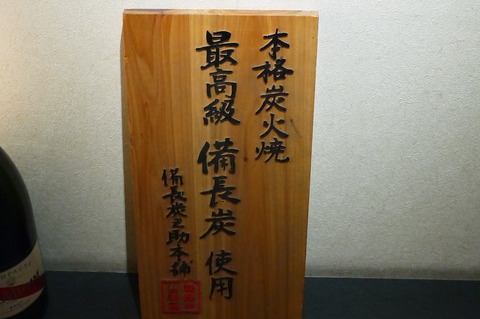 本格炭火焼
最高級 備長炭 使用
備長炭之助本舗